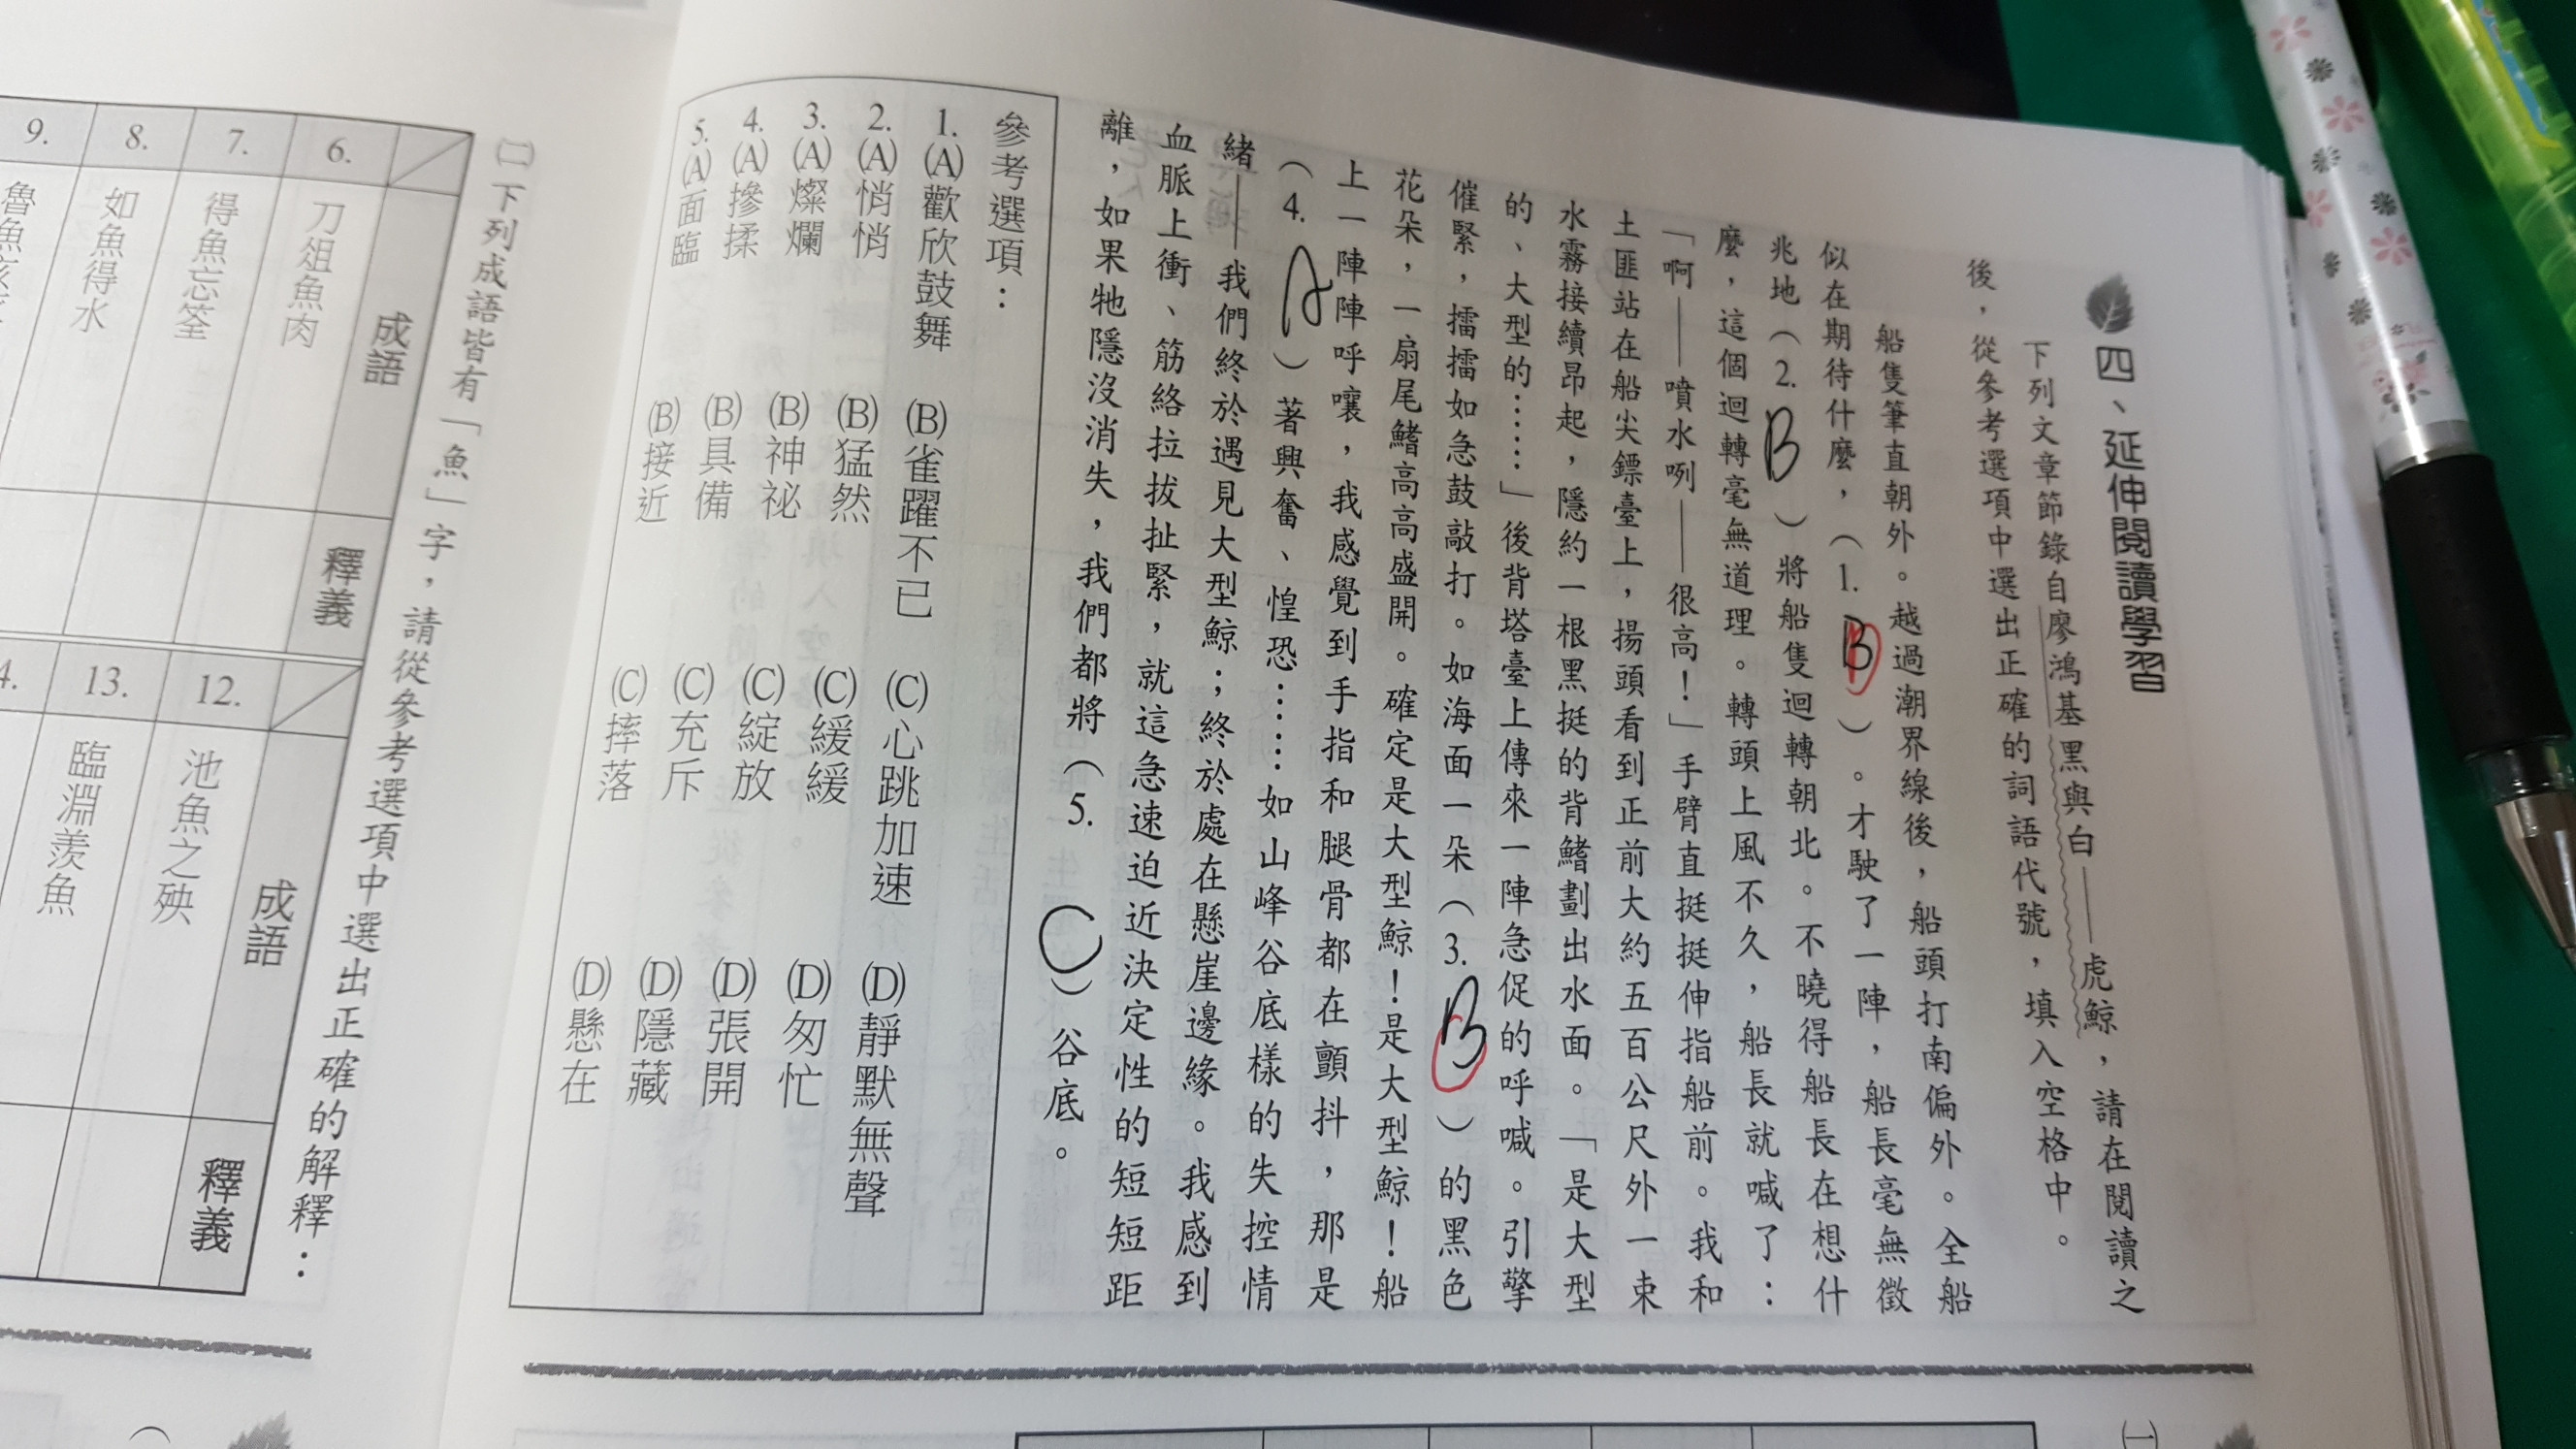 四、延伸閱讀學習
下列文章節錄自廖鴻基黑與白——虎鯨，請在閱讀之
後，從參考選項中選出正確的詞語代號，填入空格中。
船隻筆直朝外。越過潮界線後，船頭打南偏外。全船
似在期待什麼，（1. B ）。才駛了一陣，船長毫無徵
兆地（2. B ）將船隻迴轉朝北。不曉得船長在想什
麼，這個迴轉毫無道理。轉頭上風不久，船長就喊了：
「啊——噴水咧——很高！」手臂直挺挺伸指船前。我和
土匪站在船尖鏢臺上，揚頭看到正前大約五百公尺外一束
水霧接續昂起，隱約一根黑挺的背鰭劃出水面。「是大型
的、大型的……」後背塔臺上傳來一陣急促的呼喊。引擎
催緊，擂擂如急鼓敲打。如海面一朵（3. B ）的黑色
花朵，一扇尾鰭高高盛開。確定是大型鯨！是大型鯨！船
上一陣陣呼嚷，我感覺到手指和腿骨都在顫抖，那是
（4. A ）著興奮、惶恐……如山峰谷底樣的失控情
緒——我們終於遇見大型鯨；終於處在懸崖邊緣。我感到
血脈上衝、筋絡拉拔扯緊，就這急速迫近決定性的短短距
離，如果牠隱沒消失，我們都將（5. C ）谷底。
參考選項：
1.(A)歡欣鼓舞 (B)雀躍不已 (C)心跳加速 (D)靜默無聲
2.(A)悄悄 (B)猛然 (C)緩緩 (D)匆忙
3.(A)燦爛 (B)神祕 (C)綻放 (D)張開
4.(A)摻揉 (B)具備 (C)充斥 (D)隱藏
5.(A)面臨 (B)接近 (C)摔落 (D)懸在
㈡下列成語皆有「魚」字，請從參考選項中選出正確的解釋：
成語 釋義 成語 釋義
6. 刀俎魚肉 12. 池魚之殃
7. 得魚忘筌 13. 臨淵羨魚
8. 如魚得水
9. 魯魚亥
㈠